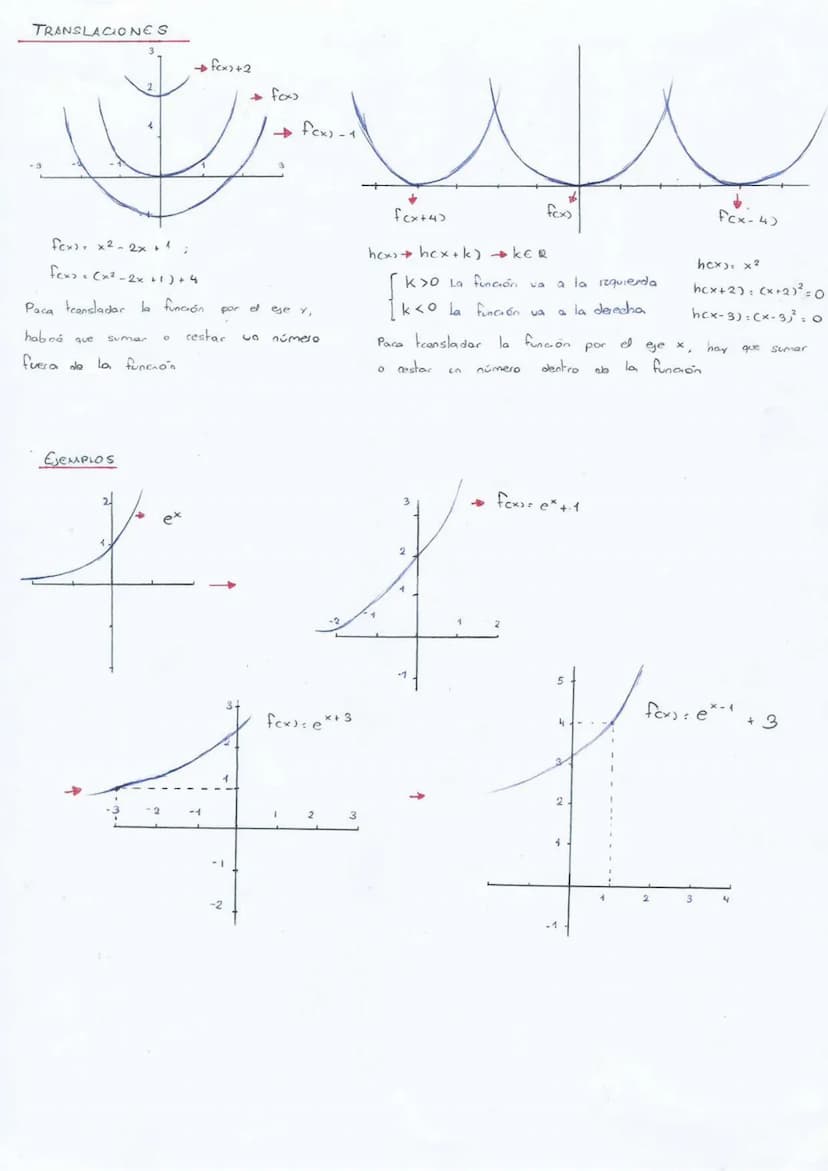 TRANSLACIONES
3
2
1
-3 -2 -1 1 3
-1
→ f(x)+2
→ f(x)
→ f(x)-1
f(x+4) f(x) f(x-4)
f(x) = x² - 2x + 1 ;
f(x) = (x² - 2x + 1) + 4
Para transladar la función por el eje y,
habrá que sumar o restar un número
fuera de la función
h(x) → h(x+k) → k ∈ ℝ
k>0 La función va a la izquierda
k<0 la función va a la derecha
h(x) = x²
h(x+2) = (x+2)² = 0
h(x-3) = (x-3)² = 0
Para transladar la función por el eje x, hay que sumar
o restar un número dentro de la función
EJEMPLOS
2
1
→ e^x
→
3
2
1
-2 -1 1 2
-1
→ f(x) = e^x + 1
→
3
2
1
-3 -2 -1 1 2 3
-1
-2
f(x) = e^x+3
→
5
4
3
2
1
1 2 3 4
-1
f(x) = e^x-1 + 3